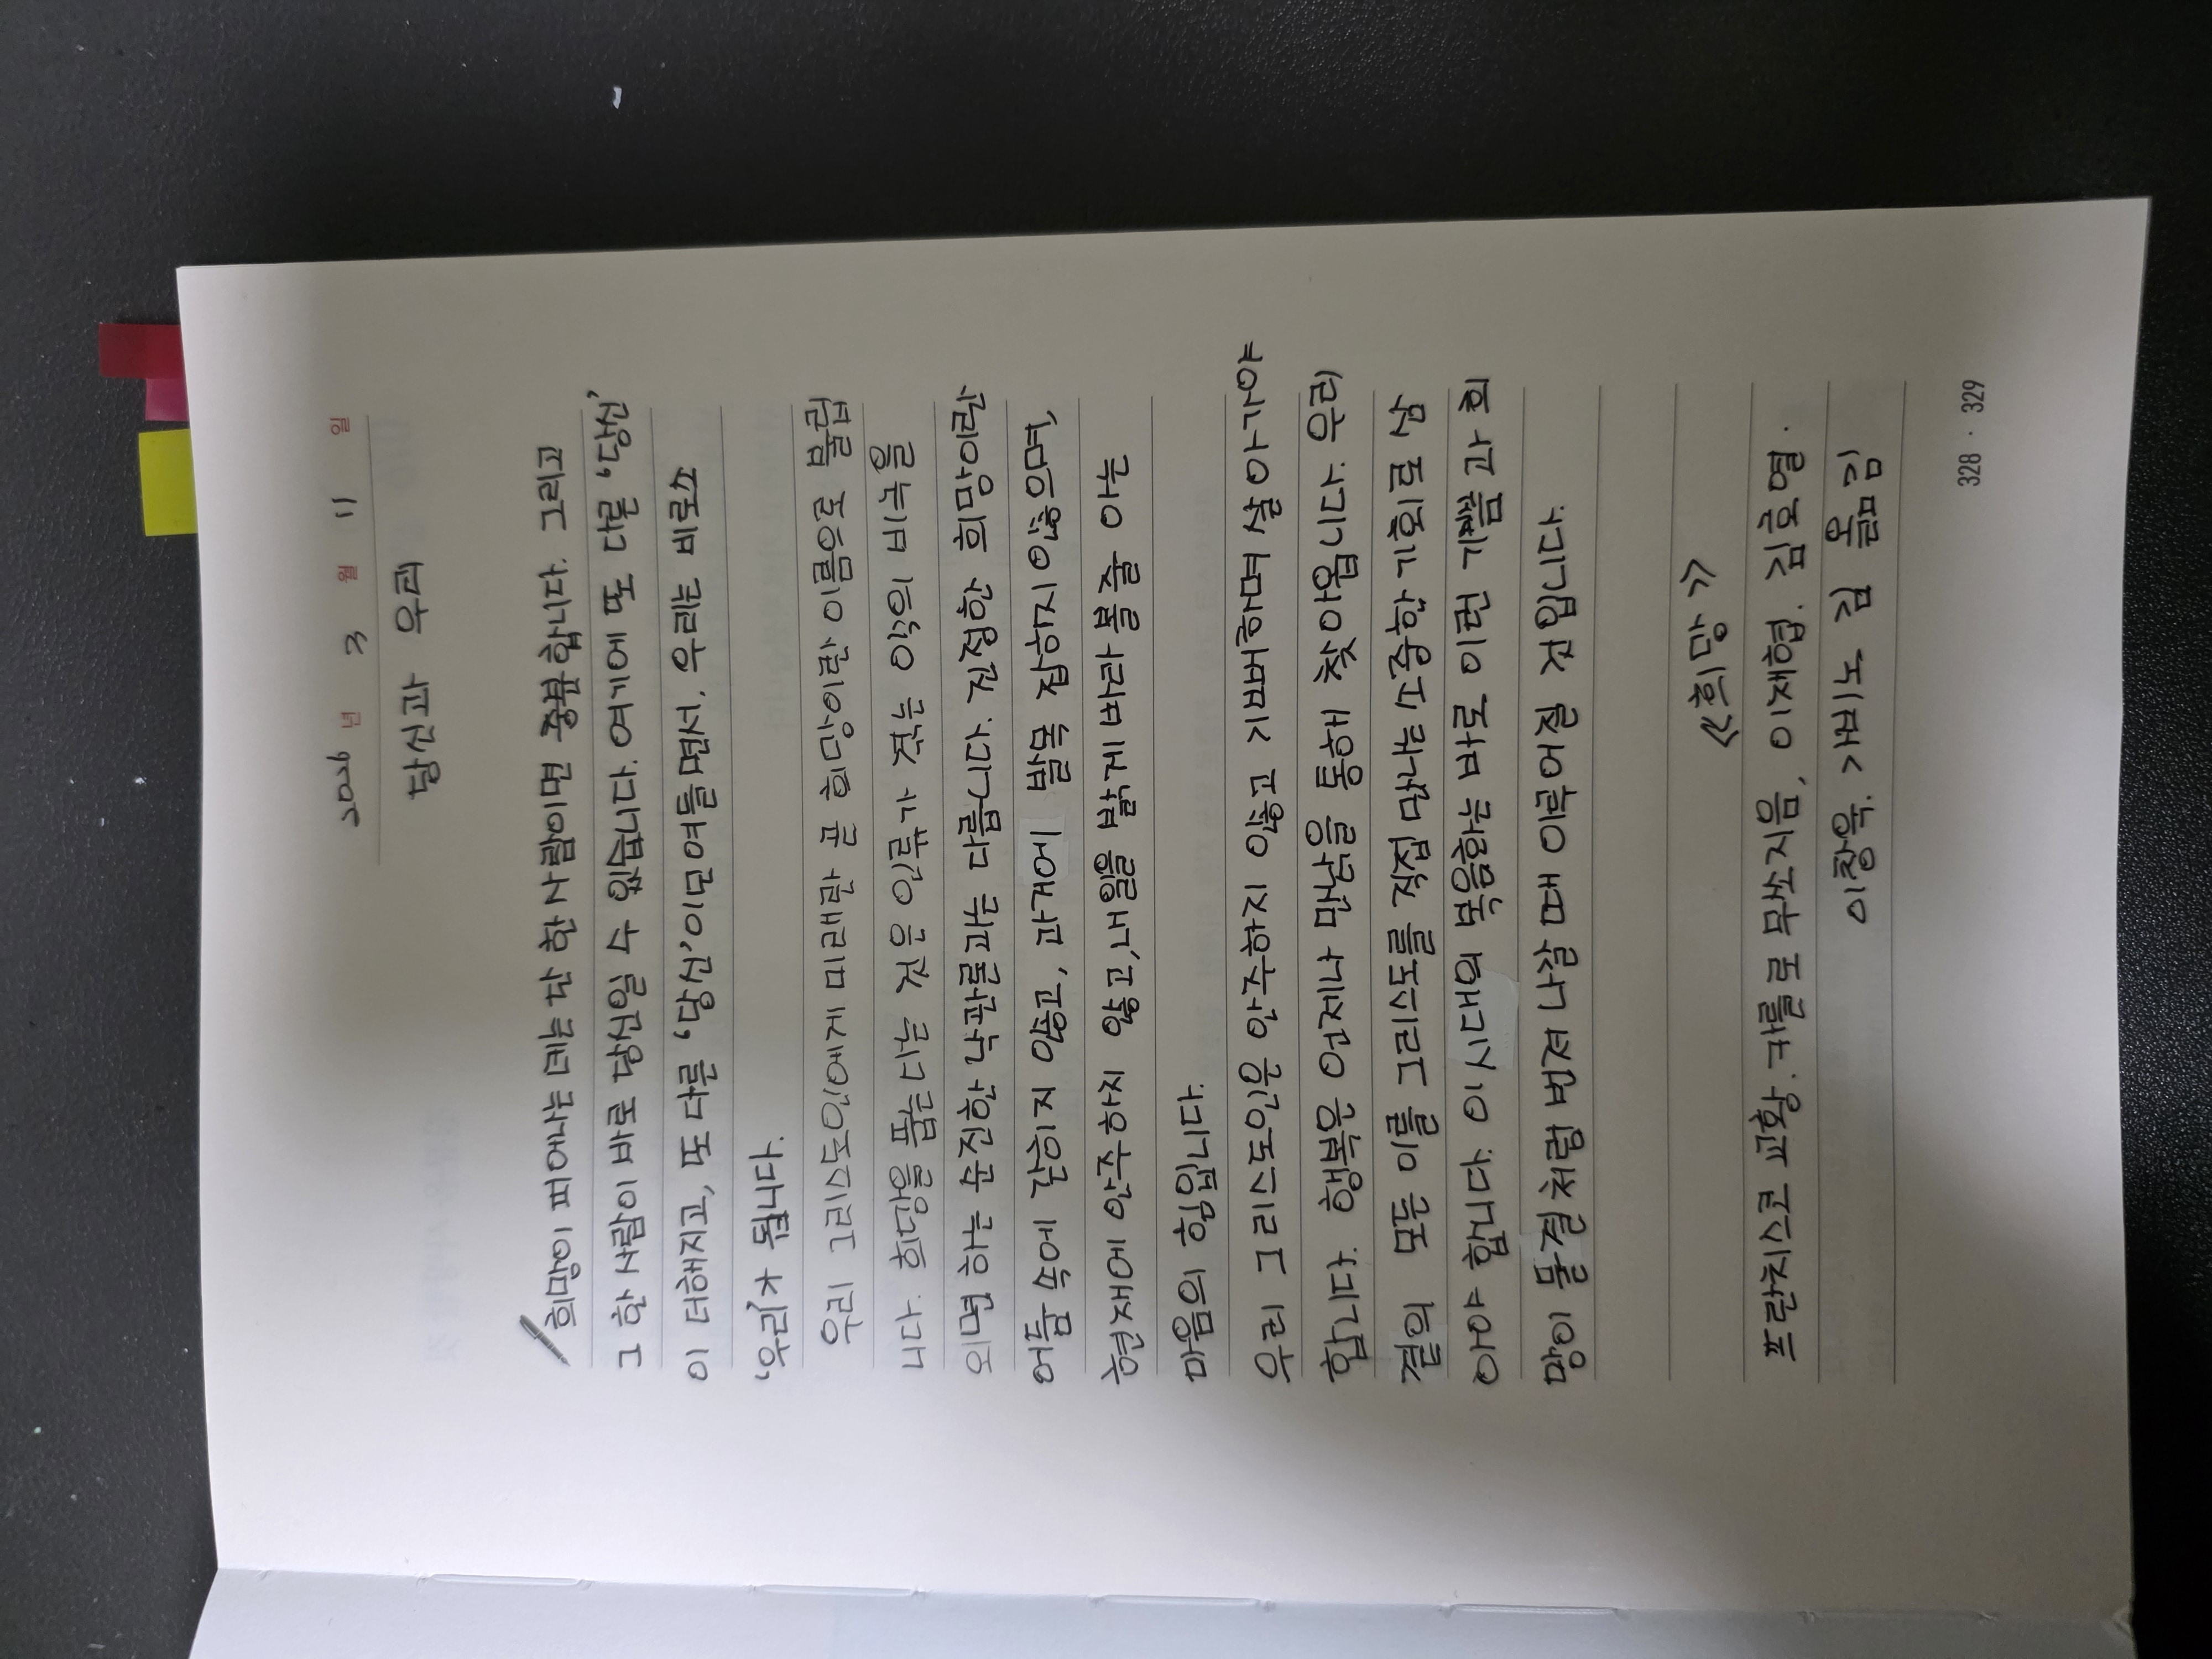 2026 년 3 월 11 일
당신과 우리
희망이 피어나는 데는 단 한 사람이면 충분합니다. 그리고
그 한 사람이 바로 당신일 수 있습니다. 여게에 또 다른 '당신'
이 더해지고, 또 다른 '당신'이 면서. 우리는 비로소
'우리'가 됩니다.
우리 그리스도인에게 미래란 곧 희망이란 이름으로 불립
니다. 희망을 품는다는 것은 인류가 겪는 악의 비극을
외면하는 순진한 낙관론과는 다릅니다. 진정한 희망이란
어둠 속에 갇히지 않고, 과거에 발목 잡하지 않으며,
현재에 안주하지 않고, 내일을 밝게 바라볼 줄 아는
마음의 힘입니다.
우리 그리스도인은 안주하지 않고 기뻐하며 살아가야
합니다. 행복은 언제나 만남을 통해 찾아옵니다. 우리
곁의 모든 이를 그리스도를 직접 만나는 기회로 삼
아야 합니다. 이 시대의 복음화는 바로 이런 기쁨과 희
망이 물결처럼 번져 나갈 때 이뤄어질 것입니다.
《희망》
프란치스코 교황. 카를로 무쏘 지음, 이재협. 김호열.
이창욱. 가비노 김 옮김
328 · 329